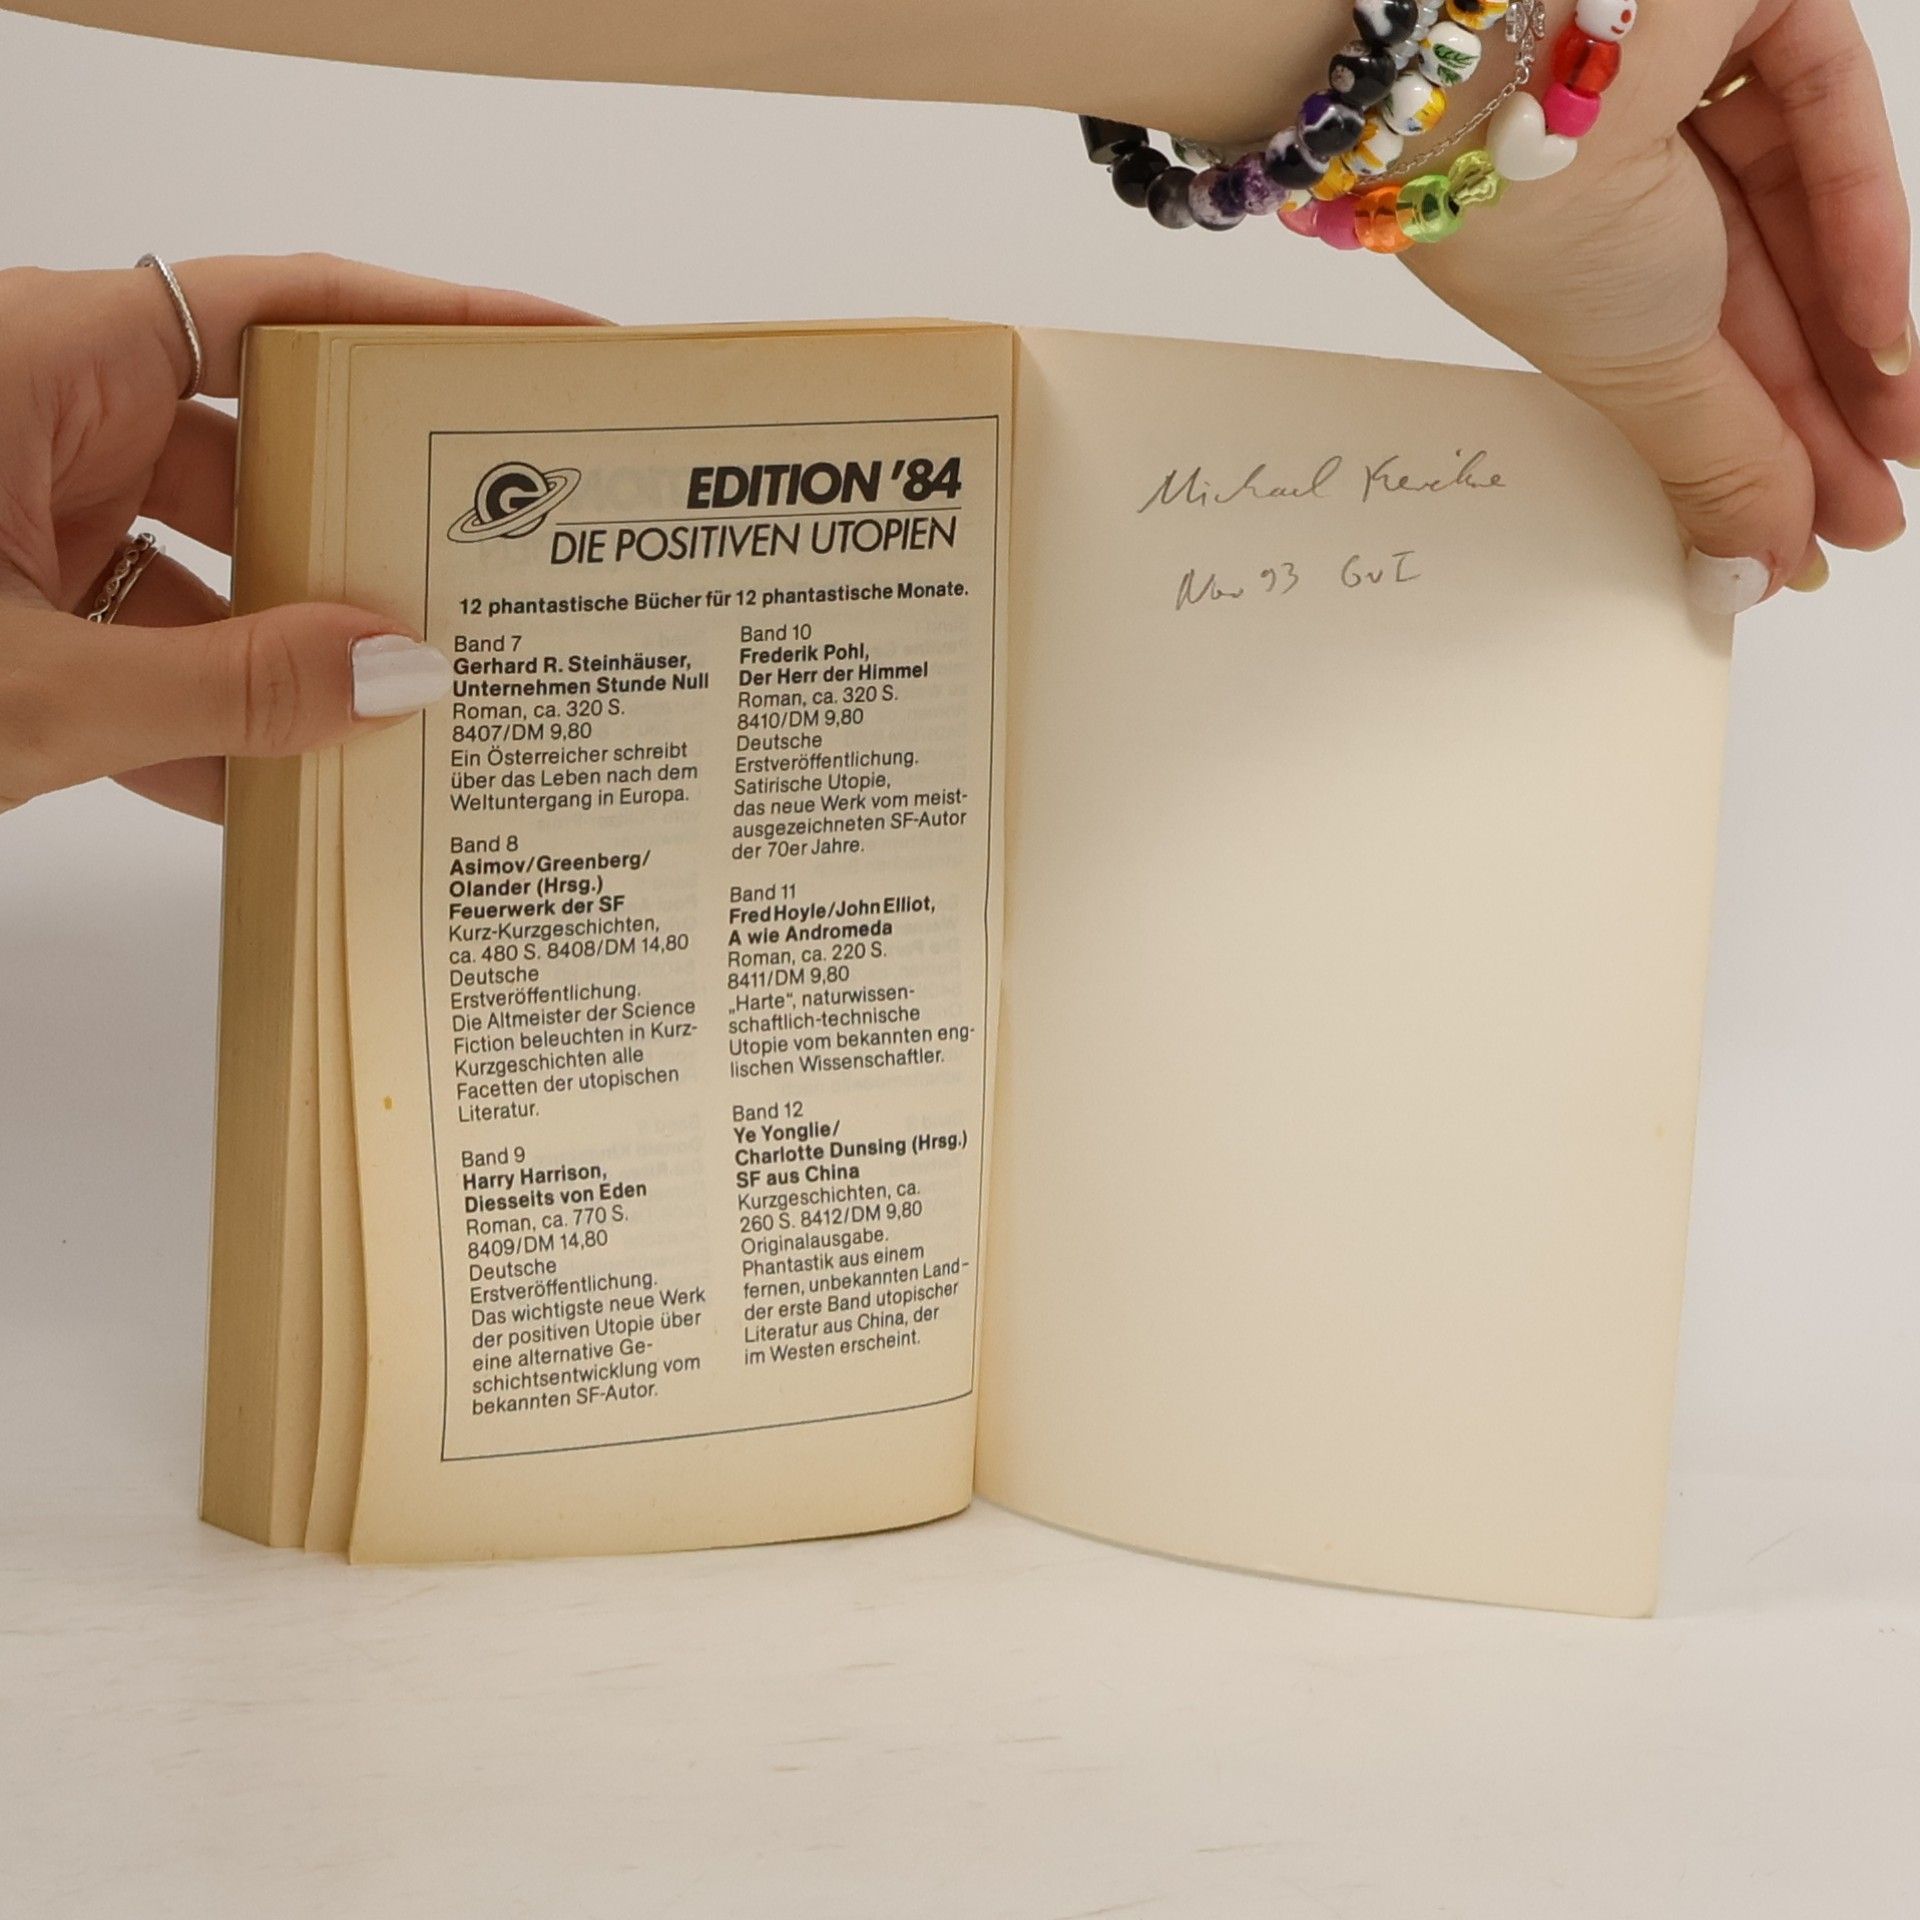 G
EDITION '84
DIE POSITIVEN UTOPIEN
12 phantastische Bücher für 12 phantastische Monate.
Band 7
Gerhard R. Steinhäuser,
Unternehmen Stunde Null
Roman, ca. 320 S.
8407/DM 9,80
Ein Österreicher schreibt
über das Leben nach dem
Weltuntergang in Europa.
Band 8
Asimov/Greenberg/
Olander (Hrsg.)
Feuerwerk der SF
Kurz-Kurzgeschichten,
ca. 480 S. 8408/DM 14,80
Deutsche
Erstveröffentlichung.
Die Altmeister der Science
Fiction beleuchten in Kurz-
Kurzgeschichten alle
Facetten der utopischen
Literatur.
Band 9
Harry Harrison,
Diesseits von Eden
Roman, ca. 770 S.
8409/DM 14,80
Deutsche
Erstveröffentlichung.
Das wichtigste neue Werk
der positiven Utopie über
eine alternative Ge-
schichtsentwicklung vom
bekannten SF-Autor.
Band 10
Frederik Pohl,
Der Herr der Himmel
Roman, ca. 320 S.
8410/DM 9,80
Deutsche
Erstveröffentlichung.
Satirische Utopie,
das neue Werk vom meist-
ausgezeichneten SF-Autor
der 70er Jahre.
Band 11
Fred Hoyle/John Elliot,
A wie Andromeda
Roman, ca. 220 S.
8411/DM 9,80
„Harte“, naturwissen-
schaftlich-technische
Utopie vom bekannten eng-
lischen Wissenschaftler.
Band 12
Ye Yonglie/
Charlotte Dunsing (Hrsg.)
SF aus China
Kurzgeschichten, ca.
260 S. 8412/DM 9,80
Originalausgabe.
Phantastik aus einem
fernen, unbekannten Land-
der erste Band utopischer
Literatur aus China, der
im Westen erscheint.
Michael
Nov 93 GvI